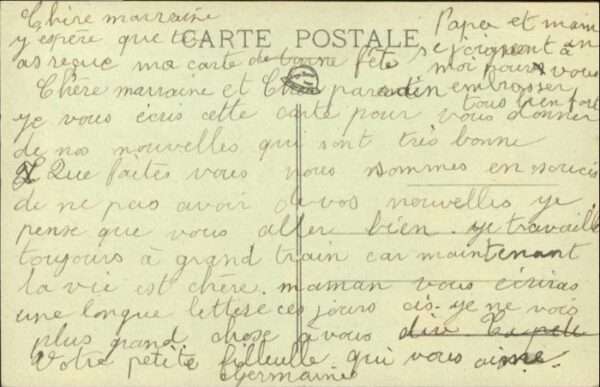 Chère marraine
y espère que tu
CARTE POSTALE
as reçue ma carte de bonne fête
Chère marraine et Cher paradin
ye vous écris cette carte pour vous donner
de nos nouvelles qui sont très bonne
Que faites vous nous sommes en soucis
de ne pas avoir de vos nouvelles ye
pense que vous aller bien. ye travaille
toujours à grand train car maintenant
la vie est chère. maman vous écriras
une longue lettre ces jours cis. ye ne vois
plus grand chose à vous dire
Votre petite filleulle qui vous aime
Germaine
Papa et mam
an
se joignent à
moi pour vous
embrasser
tous bien fort